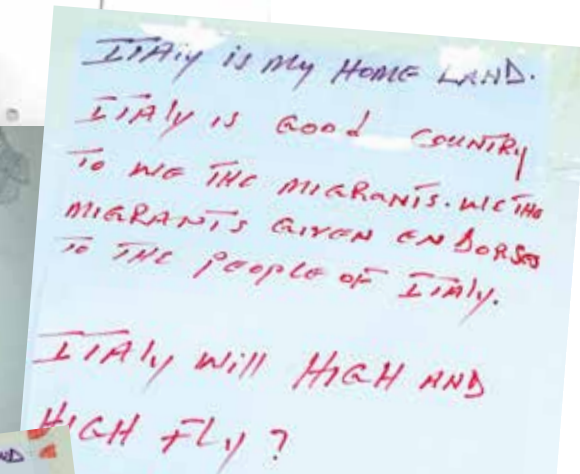 ITAly is my HOME LAND.
ITAly is Good COUNTRy
To WE THE MIGRANTS. WE THE
MIGRANTS GIVEN ENDORSES
To THE PEOPLE OF ITAly.
ITAly Will HIGH AND
HIGH FLy?